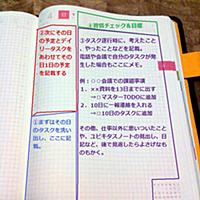 ②次にその日の予定とデイリータスクをあわせてその日1日の予定を記載する
①まずはその日のタスクを洗い出し、ここに記載。
④習慣チェック&目標
③タスク遂行時に、考えたこと、やったことなどを記載。
電話や会議で自分のタスクが発生した場合もここにメモ。
例:○○会議での確認事項
1. ××資料を13日までに出す
→□マスターTODOに追加
2. 10日に一報連絡を入れる
→□10日のタスクに追加
その他、仕事以外に思いついたことや、ユビキタスノートの日記など、後で見返したらよさげなものもかく。